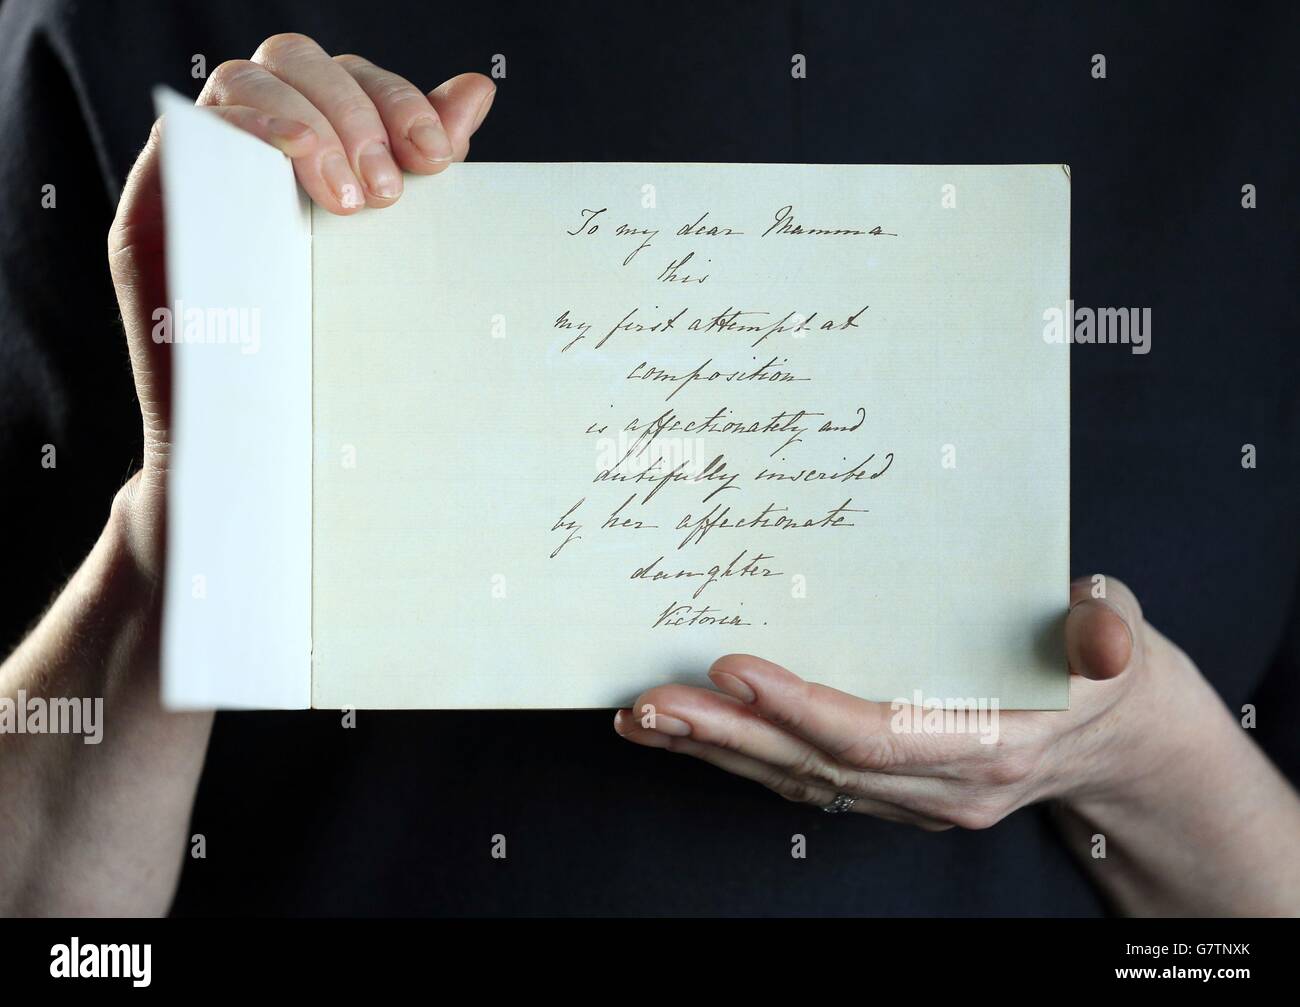 To my dear Mamma
this
my first attempt at
composition
is affectionately and
dutifully inscribed
by her affectionate
daughter
Victoria.
alamy
alamy
a
a
a
a
alamy stock photo
G7TNXK
www.alamy.com